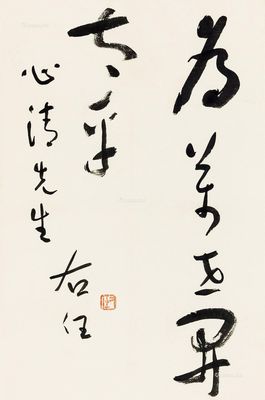 為萬世開
太平
心清先生
右任